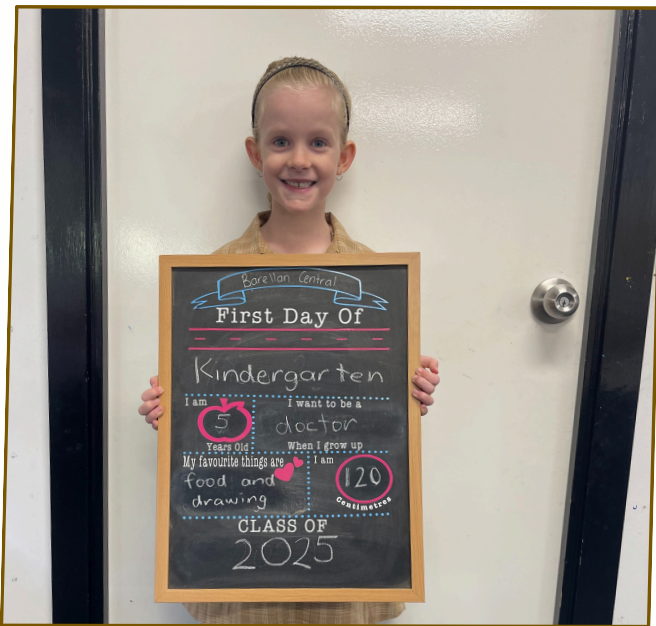 Barellan Central
First Day Of
Kindergarten
I am
5
Years Old
I want to be a
doctor
When I grow up
My favourite things are
food and
drawing
I am
120
Centimetres
CLASS OF
2025